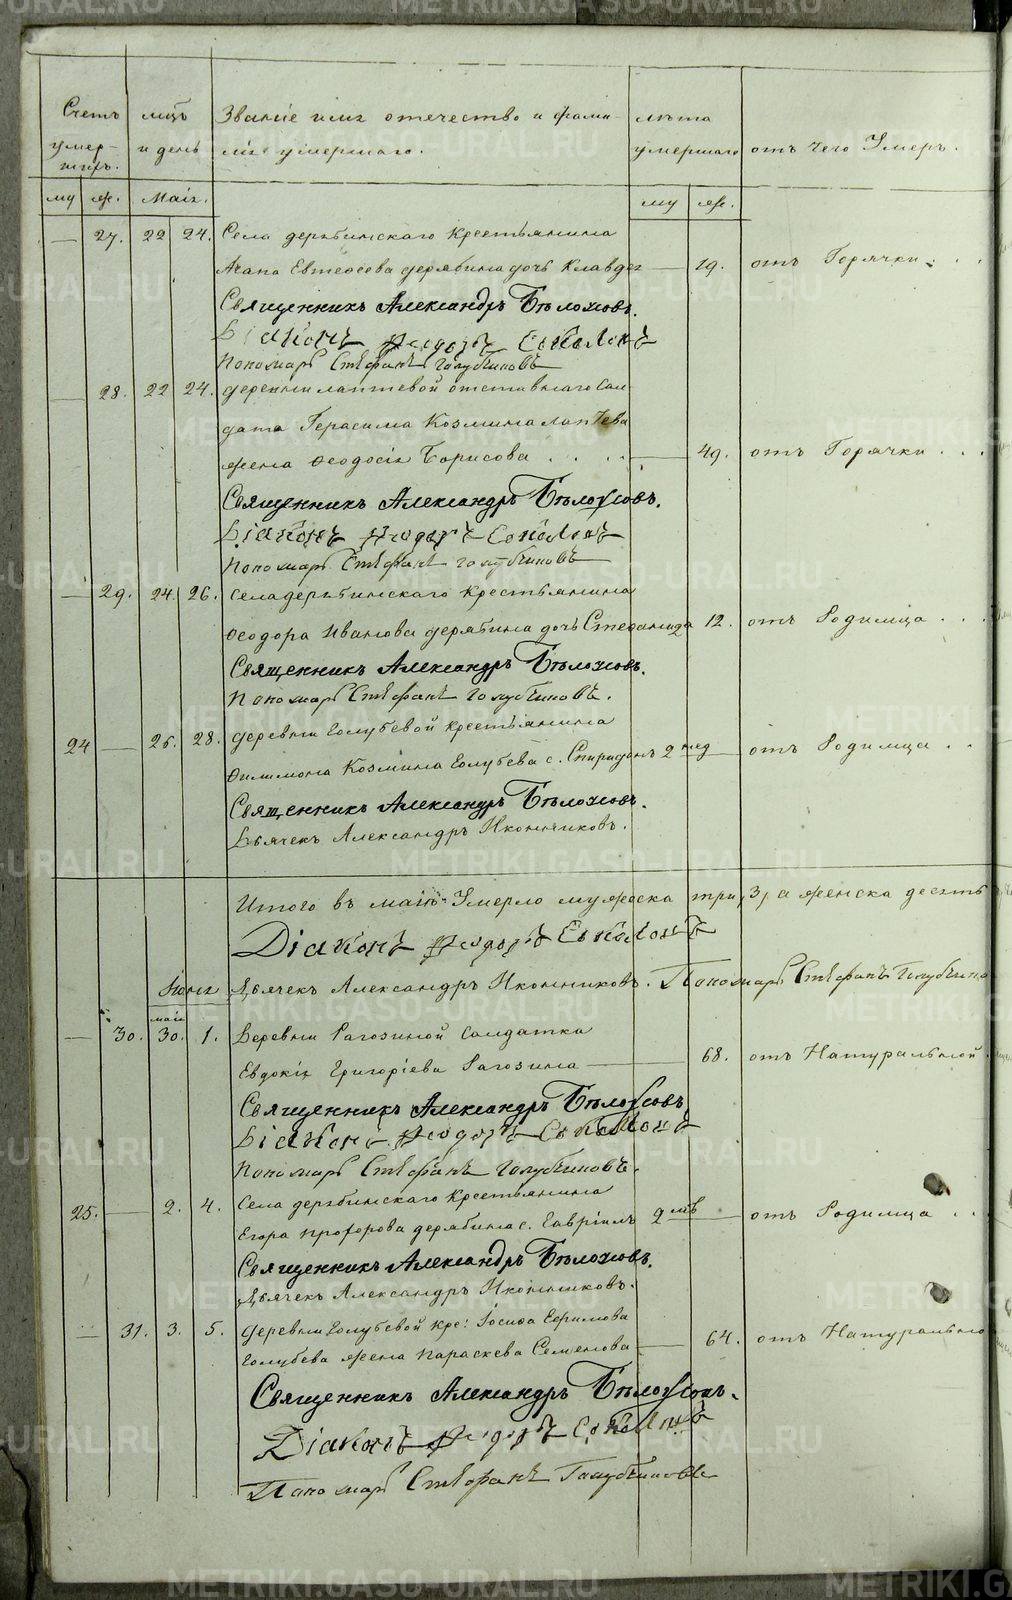 METRIKI.GASO-URAL.RU
Счетъ мцъ Званіе имя отечество и фами- лѣта
умер- и день лія умершаго. умершаго отъ чего Умеръ.
шихъ.
му ж. Маія. му ж.
— 27. 22 24. Села дерябинскаго Крестьянина
Агапа Евтеосова дерябина дочь Клавдея — 19. отъ Горячки . . .
Священникъ Александръ Бѣлоусовъ.
Діаконъ Ѳеодоръ Соколовъ
Пономарь Стефанъ Голубчиковъ
— 28. 22 24. деревни лаптевой отставнаго сол-
дата Герасима Козмина лаптева
жена Ѳеодосія Борисова . . . — 49. отъ Горячки . . .
Священникъ Александръ Бѣлоусовъ.
Діаконъ Ѳеодоръ Соколовъ
Пономарь Стефанъ Голубчиковъ
— 29. 24. 26. села дерябинскаго крестьянина
Ѳеодора Иванова дерябина дочь Степанида 12. отъ Родимца . . .
Священникъ Александръ Бѣлоусовъ.
Пономарь Стефанъ Голубчиковъ.
24 — 26. 28. деревни Голубевой крестьянина
Филимона Козмина Голубева с. Спиридонъ 2 нед — отъ Родимца . .
Священникъ Александръ Бѣлоусовъ.
Дьячекъ Александръ Иконниковъ.
Итого въ маіѣ Умерло мужеска три, 3, а женска десять
Діаконъ Ѳеодоръ Соколовъ
Іюня Дьячекъ Александръ Иконниковъ. Пономарь Стефанъ Голубчиковъ
маія
— 30. 30. 1. Деревни Рагозиной солдатка
Евдокія Григоріева Рагозина — 68. отъ Натуральной
Священникъ Александръ Бѣлоусовъ
Діаконъ Ѳеодоръ Соколовъ
Пономарь Стефанъ Голубчиковъ.
25. — 2. 4. Села дерябинскаго Крестьянина
Егора Прохорова дерябина с. Гавріилъ 2 мѣ — отъ Родимца . .
Священникъ Александръ Бѣлоусовъ.
Дьячекъ Александръ Иконниковъ.
— 31. 3. 5. деревни Голубевой кре: Іосифа Ефимова
Голубева жена Параскева Семенова — 64. отъ Натурально
Священникъ Александръ Бѣлоусовъ.
Діаконъ Ѳеодоръ Соколовъ
Пономарь Стефанъ Голубчиковъ